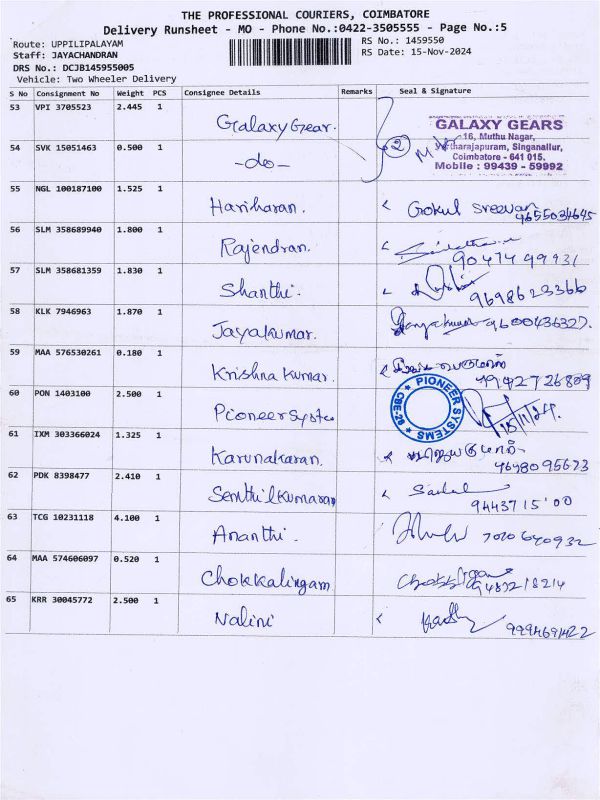 THE PROFESSIONAL COURIERS, COIMBATORE
Delivery Runsheet - MO - Phone No.:0422-3505555 - Page No.:5
Route: UPPILIPALAYAM
Staff: JAYACHANDRAN
DRS No.: DCJB145955005
Vehicle: Two Wheeler Delivery
RS No.: 1459550
RS Date: 15-Nov-2024
S No Consignment No Weight PCS Consignee Details Remarks Seal & Signature
53 VPI 3705523 2.445 1 Galaxy Gear.
54 SVK 15051463 0.500 1 -do- 2
GALAXY GEARS
16, Muthu Nagar,
Varatharajapuram, Singanallur,
Coimbatore - 641 015.
Mobile : 99439 - 59992
55 NGL 100187100 1.525 1 Hariharan. Gokul Sreevan 9655034645
56 SLM 358689940 1.800 1 Rajendran.
57 SLM 358681359 1.830 1 Shanthi. 9698623366
58 KLK 7946963 1.870 1 Jayakumar. 9600436327.
59 MAA 576530261 0.180 1 Krishna Kumar.
60 PON 1403100 2.500 1 Pioneer Syste
PIONEER SYSTEMS
15/11/24.
61 IXM 303366024 1.325 1 Karunakaran.
62 PDK 8398477 2.410 1 Senthilkumaran
63 TCG 10231118 4.100 1 Ananthi.
64 MAA 574606097 0.520 1 Chokkalingam
65 KRR 30045772 2.500 1 Nalini